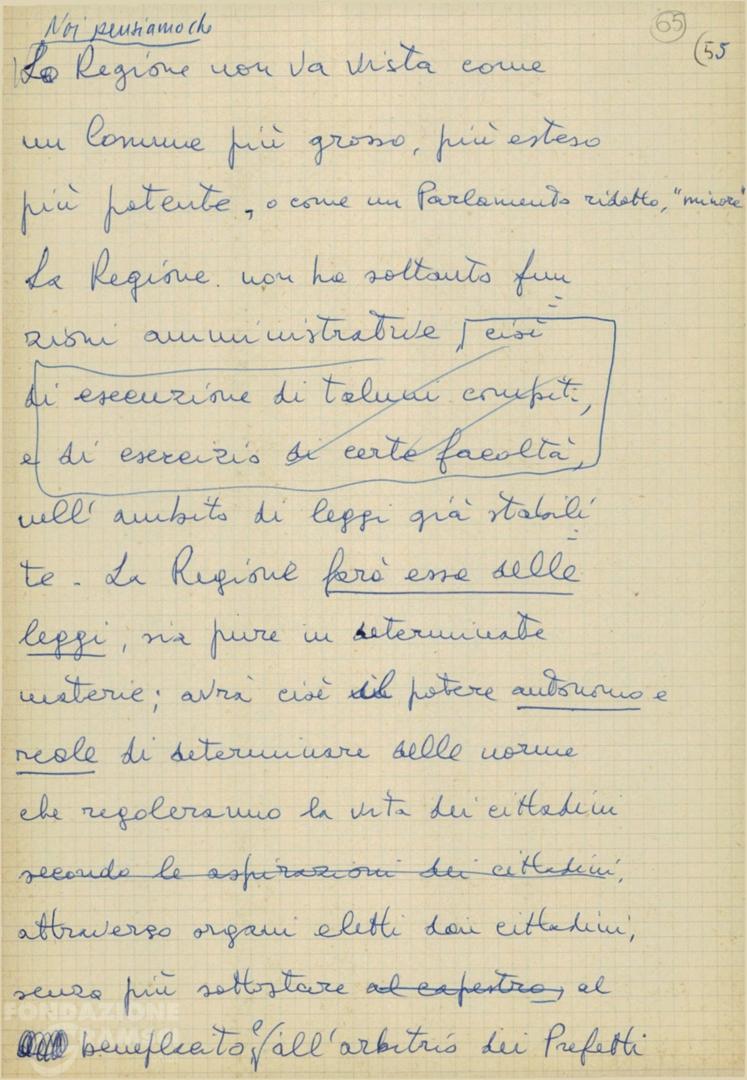 Noi pensiamo che
65
(55
La Regione non va vista come
un Comune più grosso, più esteso
più potente, o come un Parlamento ridotto, "minore"
La Regione non ha soltanto fun
zioni amministrative, cioè
di esecuzione di taluni compiti,
e di esercizio di certe facoltà,
nell'ambito di leggi già stabili
te - La Regione farà essa delle
leggi, sia pure in determinate
materie; avrà cioè il potere autonomo e
reale di determinare delle norme
che regoleranno la vita dei cittadini
secondo le aspirazioni dei cittadini,
attraverso organi eletti dai cittadini,
senza più sottostare al capestro, al
beneplacito e all'arbitrio dei Prefetti
FONDAZIONE